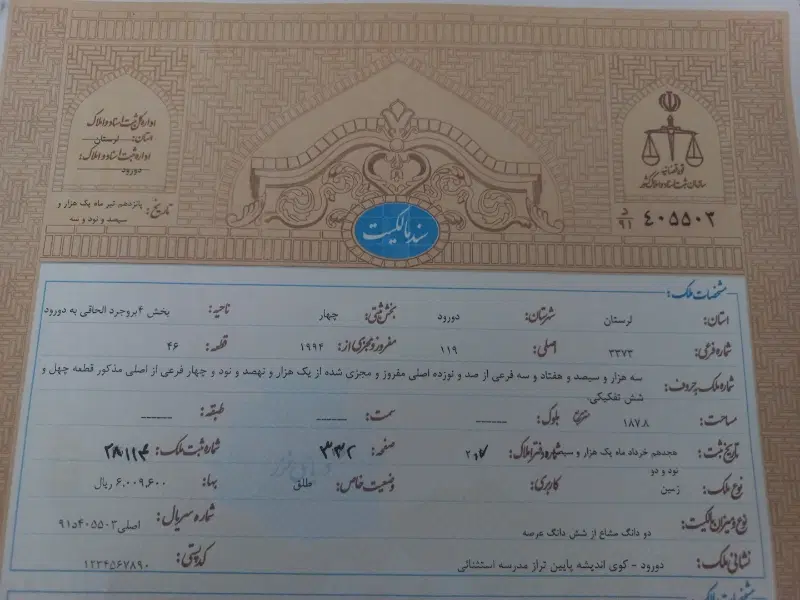 اداره کل ثبت اسناد و املاک
استان: لرستان
اداره ثبت اسناد و املاک:
دورود
تاریخ: پانزدهم تیر ماه یک هزار و
سیصد و نود و سه
قوه قضائیه
سازمان ثبت اسناد و املاک کشور
۴۰۵۵۰۳ د ۹۱
سند مالکیت
مشخصات ملک:
استان: لرستان شهرستان: دورود بخش ثبتی: چهار ناحیه: بخش ۴ بروجرد الحاقی به دورود
شماره فرعی: ۳۳۷۳ اصلی: ۱۱۹ مفروز و مجزی از: ۱۹۹۴ قطعه: ۴۶
شماره ملک به حروف: سه هزار و سیصد و هفتاد و سه فرعی از صد و نوزده اصلی مفروز و مجزی شده از یک هزار و نهصد و نود و چهار فرعی از اصلی مذکور قطعه چهل و
شش تفکیکی
مساحت: ۱۸۷.۸ مترمربع بلوک: ------ سمت: ------ طبقه: ------
تاریخ ثبت: هجدهم خرداد ماه یک هزار و سیصد شماره دفتر املاک: صفحه: ۳۳۲ شماره ثبت ملک: ۲۸۱۱۴
نود و دو
نوع ملک: زمین کاربری: وضعیت خاص: طلق بها: ۶,۰۰۹,۶۰۰ ریال
نوع و میزان مالکیت: دو دانگ مشاع از شش دانگ عرصه شماره سریال: اصلی۴۰۵۵۰۳د۹۱
نشانی ملک: دورود - کوی اندیشه پایین تراز مدرسه استثنائی کد پستی: ۱۲۳۴۵۶۷۸۹۰